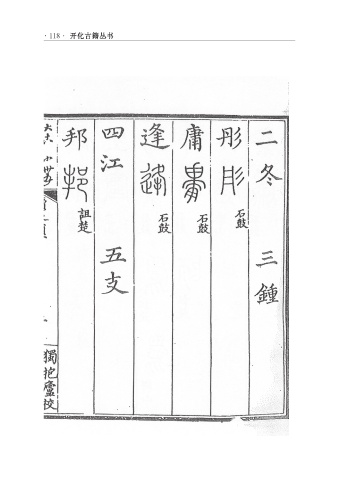 · 118 · 开化古籍丛书
二冬 三鍾
彤 石鼓
庸 石鼓
逢 石鼓
四江 五支
邦 詛楚
獨抱廬校